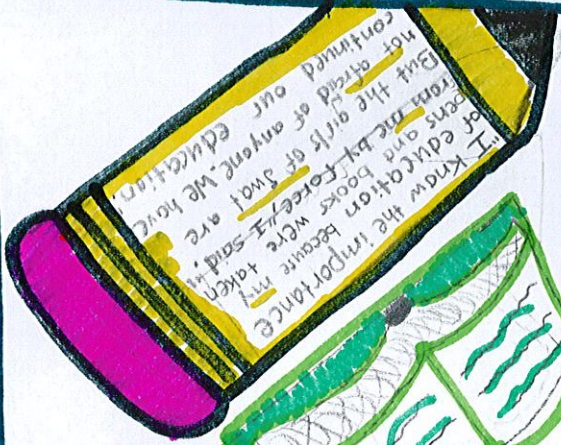 "I know the importance
of education because my
pens and books were taken
from me by force," I said, "
But the girls of Swat are
not afraid of anyone. We have
continued our education.